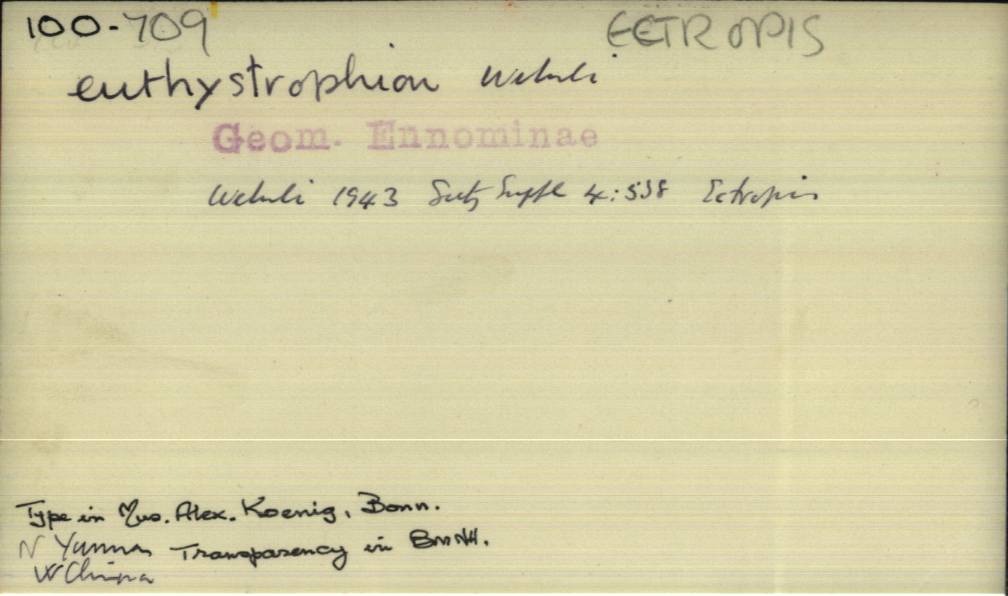 100-709 ECTROPIS
euthystrophion Wehrli
Geom. Ennominae
Wehrli 1943 Seitz Suppl 4:538 Ectropis
Type in Mus. Alex. Koenig, Bonn.
N Yunnan Transparency in BMNH.
W China